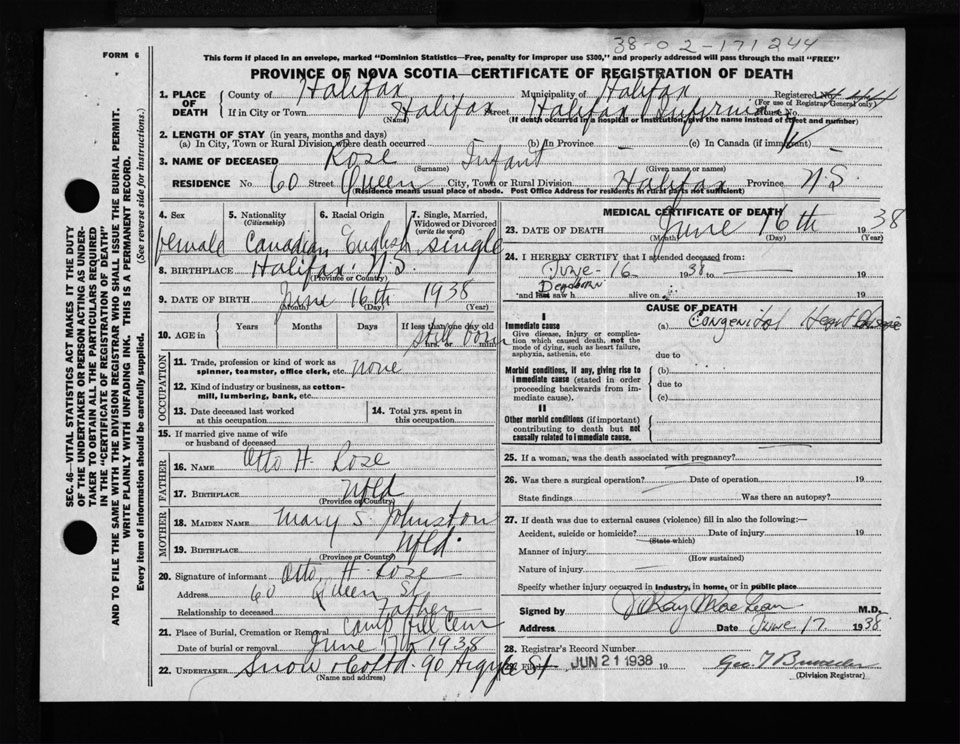 38-02-171244
FORM 6
This form if placed in an envelope, marked "Dominion Statistics—Free, penalty for improper use $300," and properly addressed will pass through the mail "FREE"
PROVINCE OF NOVA SCOTIA—CERTIFICATE OF REGISTRATION OF DEATH
SEC. 46—VITAL STATISTICS ACT MAKES IT THE DUTY
OF THE UNDERTAKER OR PERSON ACTING AS UNDER-
TAKER TO OBTAIN ALL THE PARTICULARS REQUIRED
IN THE "CERTIFICATE OF REGISTRATION OF DEATH"
AND TO FILE THE SAME WITH THE DIVISION REGISTRAR WHO SHALL ISSUE THE BURIAL PERMIT.
WRITE PLAINLY WITH UNFADING INK. THIS IS A PERMANENT RECORD.
Every item of information should be carefully supplied. (See reverse side for instructions.)
1. PLACE OF DEATH
County of Halifax Municipality of Halifax Registered No.
(For use of Registrar General only)
If in City or Town Halifax Street Halifax Infirmary House No.
(Name) (If death occurred in a hospital or institution, give the name instead of street and number)
2. LENGTH OF STAY (in years, months and days)
(a) In City, Town or Rural Division where death occurred (b) In Province — (c) In Canada (if immigrant)
3. NAME OF DECEASED Rose Infant
(Surname) (Given name or names)
RESIDENCE No 60 Street Queen City, Town or Rural Division Halifax Province N.S.
(Residence means usual place of abode. Post Office Address for residents in rural parts not sufficient)
4. Sex 5. Nationality (Citizenship) 6. Racial Origin 7. Single, Married, Widowed or Divorced (write the word)
female Canadian English single
8. BIRTHPLACE Halifax N.S.
(Province or Country)
9. DATE OF BIRTH June 16th 1938
(Month) (Day) (Year)
10. AGE in Years Months Days If less than one day old
Still born
hrs. or min.
OCCUPATION
11. Trade, profession or kind of work as
spinner, teamster, office clerk, etc. none
12. Kind of industry or business, as cotton-
mill, lumbering, bank, etc.
13. Date deceased last worked
at this occupation
14. Total yrs. spent in
this occupation
15. If married give name of wife
or husband of deceased
FATHER
16. NAME Otto H. Rose
17. BIRTHPLACE Nfld
(Province or Country)
MOTHER
18. MAIDEN NAME Mary S. Johnston
19. BIRTHPLACE Nfld.
(Province or Country)
20. Signature of informant Otto H. Rose
Address 60 Queen St
Relationship to deceased Father
21. Place of Burial, Cremation or Removal Camp Hill Cem
Date of burial or removal June 17th 1938
22. UNDERTAKER Snow & Co Ltd. 90 Argyle St
(Name and address)
MEDICAL CERTIFICATE OF DEATH
23. DATE OF DEATH June 16th 1938
(Month) (Day) (Year)
24. I HEREBY CERTIFY that I attended deceased from
June 16 1938 to — 19
and last saw h alive on 19
CAUSE OF DEATH
I
Immediate cause
Give disease, injury or complica-
tion which caused death, not the
mode of dying, such as heart failure,
asphyxia, asthenia, etc
(a) Congenital Heart Disease
due to
Morbid conditions, if any, giving rise to
immediate cause (stated in order
proceeding backwards from im-
mediate cause).
(b)
due to
(c)
II
Other morbid conditions (if important)
contributing to death but not
causally related to immediate cause.
25. If a woman, was the death associated with pregnancy?
26. Was there a surgical operation? Date of operation 19
State findings Was there an autopsy?
27. If death was due to external causes (violence) fill in also the following:—
Accident, suicide or homicide? Date of injury 19
(State which)
Manner of injury
(How sustained)
Nature of injury
Specify whether injury occurred in industry, in home, or in public place
Signed by J. Kay MacLean M.D.
Address Date June 17. 1938
28. Registrar's Record Number
29. Filed JUN 21 1938 19
(Division Registrar)